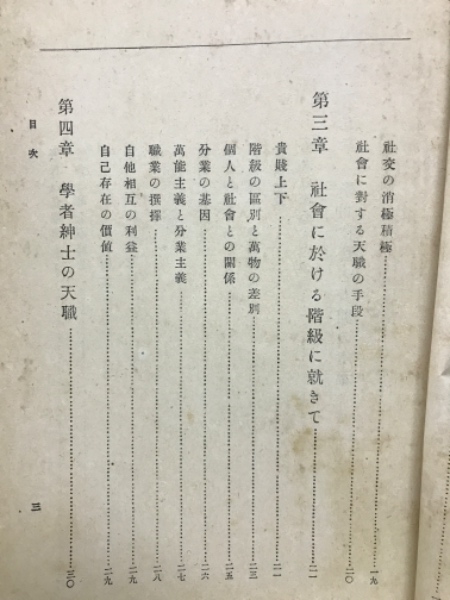 社交の消極積極……一九
社會に對する天職の手段……二〇
第三章 社會に於ける階級に就きて……二一
貴賤上下……二一
階級の區別と萬物の差別……二三
個人と社會との關係……二五
分業の基因……二六
萬能主義と分業主義……二七
職業の撰擇……二八
自他相互の利益……二九
自己存在の價値……二九
第四章 學者紳士の天職……三〇
目次
三